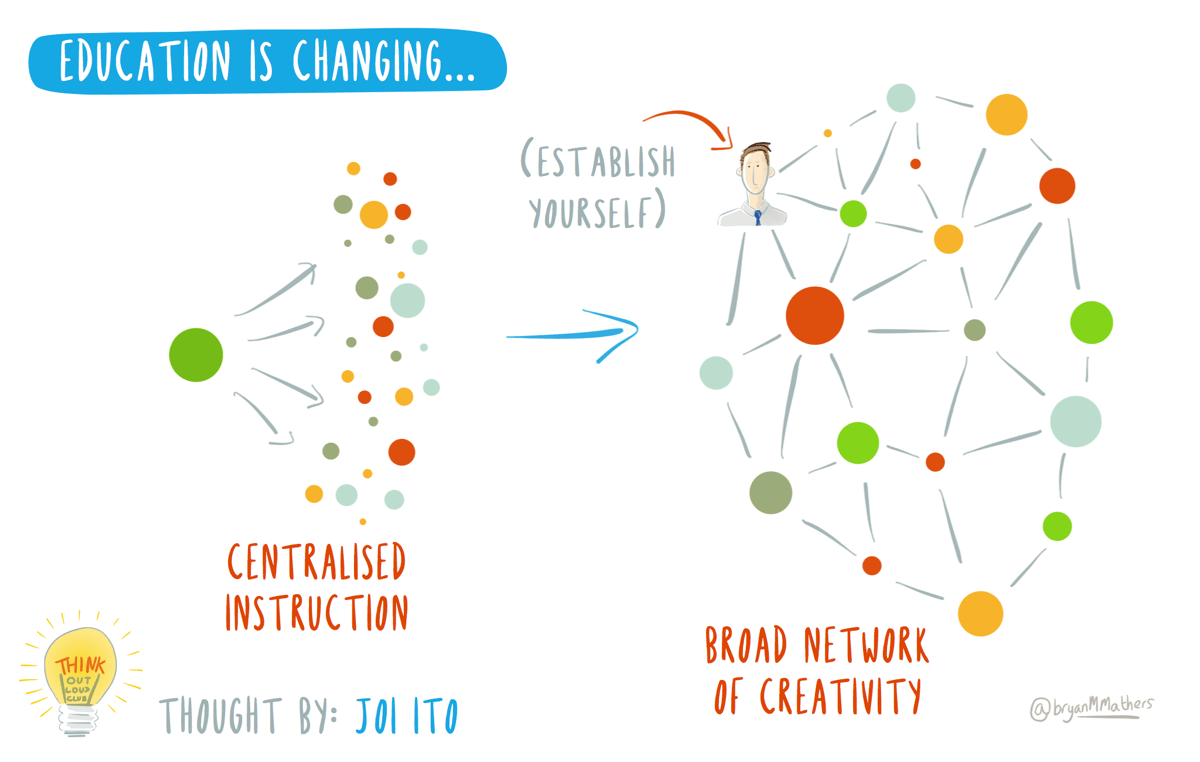 EDUCATION IS CHANGING...
(ESTABLISH
YOURSELF)
CENTRALISED
INSTRUCTION
BROAD NETWORK
OF CREATIVITY
THINK
OUT
LOUD
CLUB
THOUGHT BY: JOI ITO
@bryanMMathers